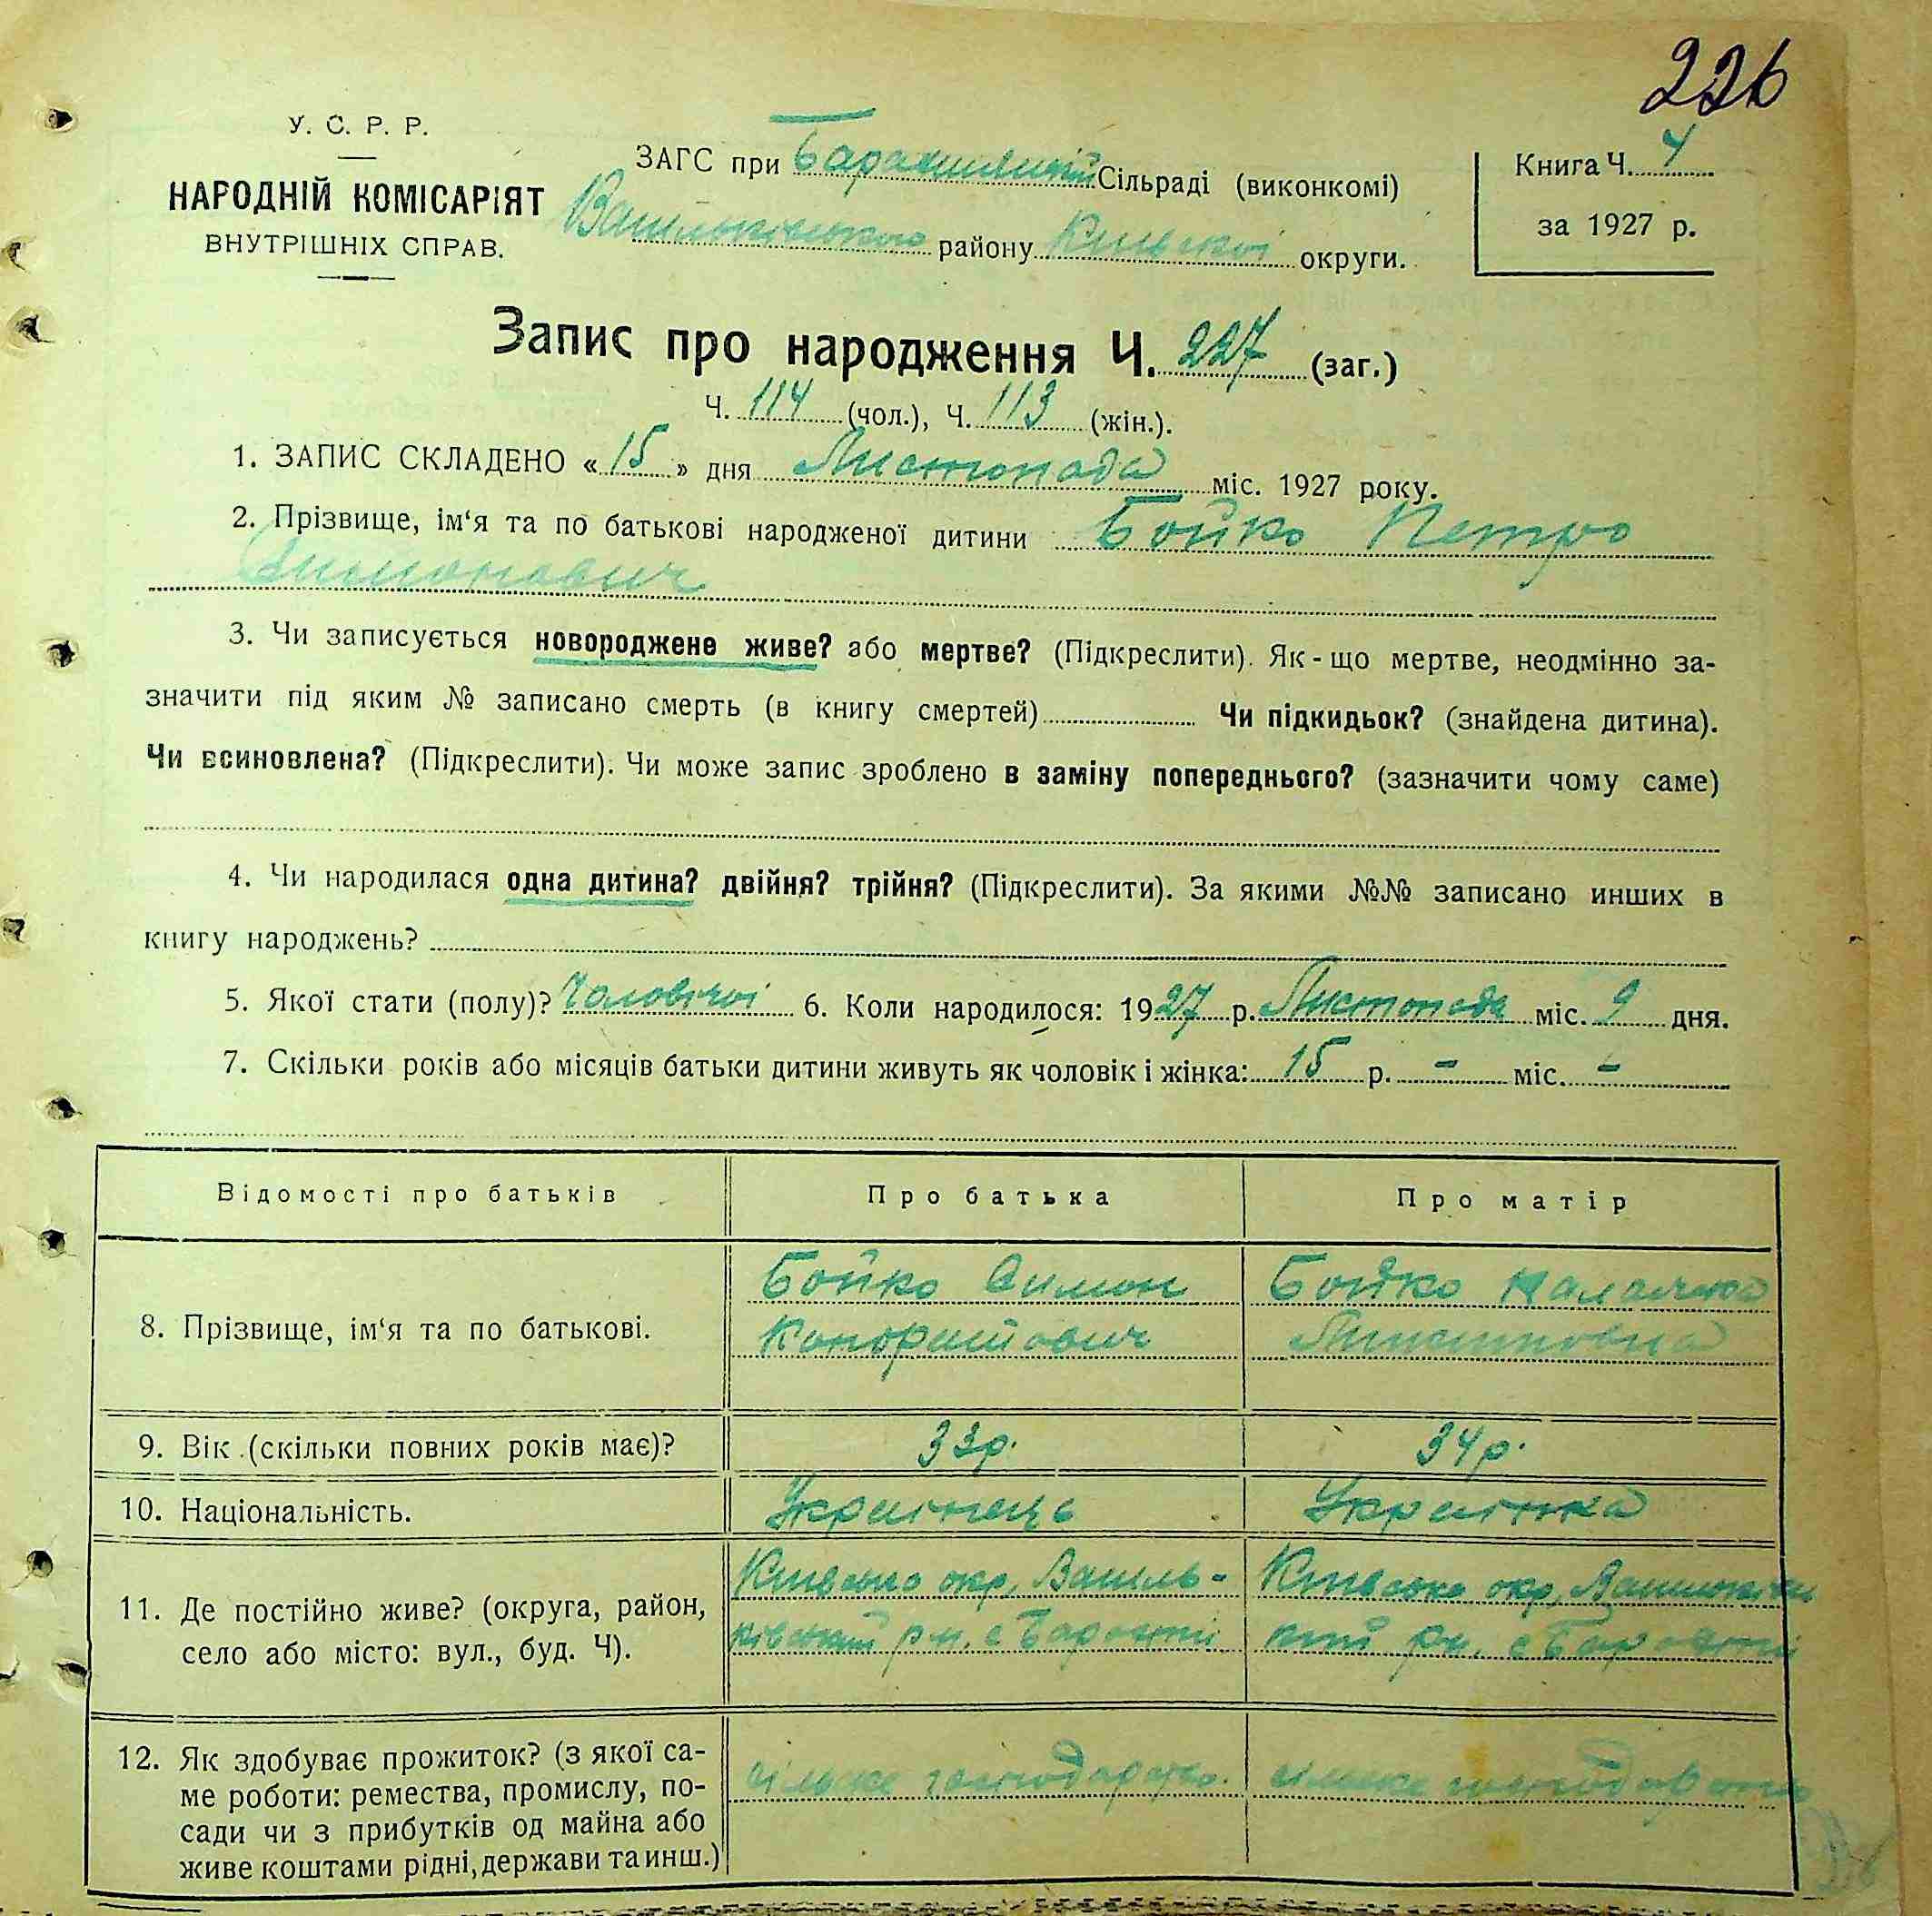 226
У. С. Р. Р.
НАРОДНІЙ КОМІСАРІЯТ
ВНУТРІШНІХ СПРАВ.
ЗАГС при Сільраді (виконкомі)
Васильківського району Київської округи.
Книга Ч. 4
за 1927 р.
Запис про народження Ч. 227 (заг.)
Ч. 114 (чол.), Ч. 113 (жін.).
1. ЗАПИС СКЛАДЕНО «15» дня Листопада міс. 1927 року.
2. Прізвище, ім‘я та по батькові народженої дитини Бойко Петро
Симонович
3. Чи записується новороджене живе? або мертве? (Підкреслити). Як-що мертве, неодмінно за-
значити під яким № записано смерть (в книгу смертей) Чи підкидьок? (знайдена дитина).
Чи всиновлена? (Підкреслити). Чи може запис зроблено в заміну попереднього? (зазначити чому саме)
4. Чи народилася одна дитина? двійня? трійня? (Підкреслити). За якими №№ записано инших в
книгу народжень?
5. Якої стати (полу)? Чоловічої 6. Коли народилося: 1927 р. Листопада міс. 9 дня.
7. Скільки років або місяців батьки дитини живуть як чоловік і жінка: 15 р. - міс. -
Відомості про батьків Про батька Про матір
8. Прізвище, ім‘я та по батькові.
Бойко Симон
Кондратович
Бойко
9. Вік (скільки повних років має)? 33 р. 34 р.
10. Національність. Українець Українка
11. Де постійно живе? (округа, район,
село або місто: вул., буд. Ч).
Київська окр., Василь-
ківський р-н, с.
Київська окр.,
р-н, с.
12. Як здобуває прожиток? (з якої са-
ме роботи: ремества, промислу, по-
сади чи з прибутків од майна або
живе коштами рідні, держави та инш.)
сільське господарство.
сільське господарство